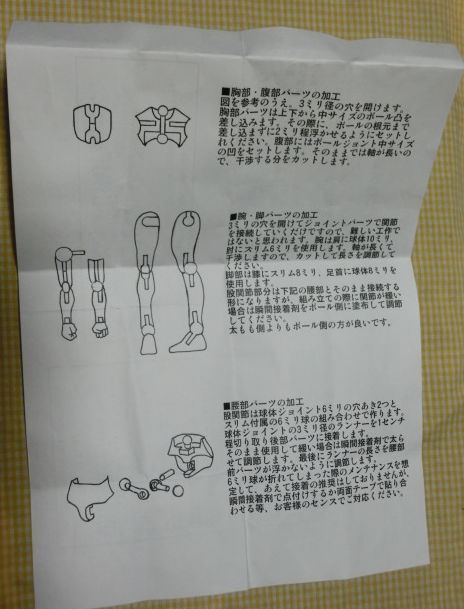 ■胸部・腹部パーツの加工
図を参考のうえ、3ミリ径の穴を開けます。
胸部パーツは上下から中サイズのボール凸を
差し込みます。その際に、ボールの根元まで
差し込まずに2ミリ程浮かせるようにセットし
れください。腹部にはボールジョント中サイズ
の凹をセットします。そのままでは軸が長いの
で、干渉する分をカットします。
■腕・脚パーツの加工
3ミリの穴を開けてジョイントパーツで関節
を接続していくだけですので、難しい工作で
はないと思われます。腕は肩に球体10ミリ、
肘にスリム6ミリを使用します。軸が長くて
干渉しますので、カットして長さを調節して
ください。
脚部は膝にスリム8ミリ、足首に球体8ミリを
使用します。
股関節部分は下記の腰部とそのまま接続する
形になりますが、組み立ての際に関節が緩い
場合は瞬間接着剤をボール側に塗布して調節
してください。
太もも側よりもボール側の方が良いです。
■腰部パーツの加工
股関節は球体ジョイント6ミリの穴あき2つと、
スリム付属の6ミリ球の組み合わせで作ります。
球体ジョイントの3ミリ径のランナーを1センチ
程切り取り後部パーツに接着します。
そのまま使用して緩い場合は瞬間接着剤で太ら
せて調節します。最後にランナーの長さを腰部
前パーツが浮かないように調節します。
6ミリ球が折れてしまった際のメンテナンスを想
定して、あえて接着の推奨はしておりませんが、
瞬間接着剤で点付けするか両面テープで貼り合
わせる等、お客様のセンスでご対応ください。